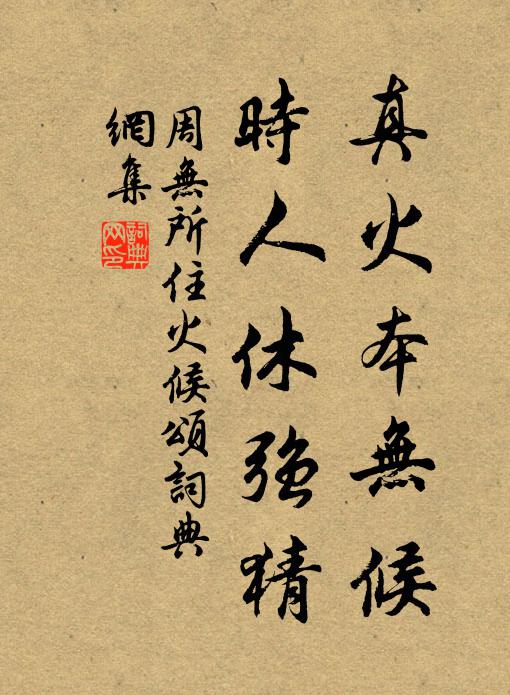 真火本無候
時人休強猜
周無所住火候頌詞典
網集
詞典网印